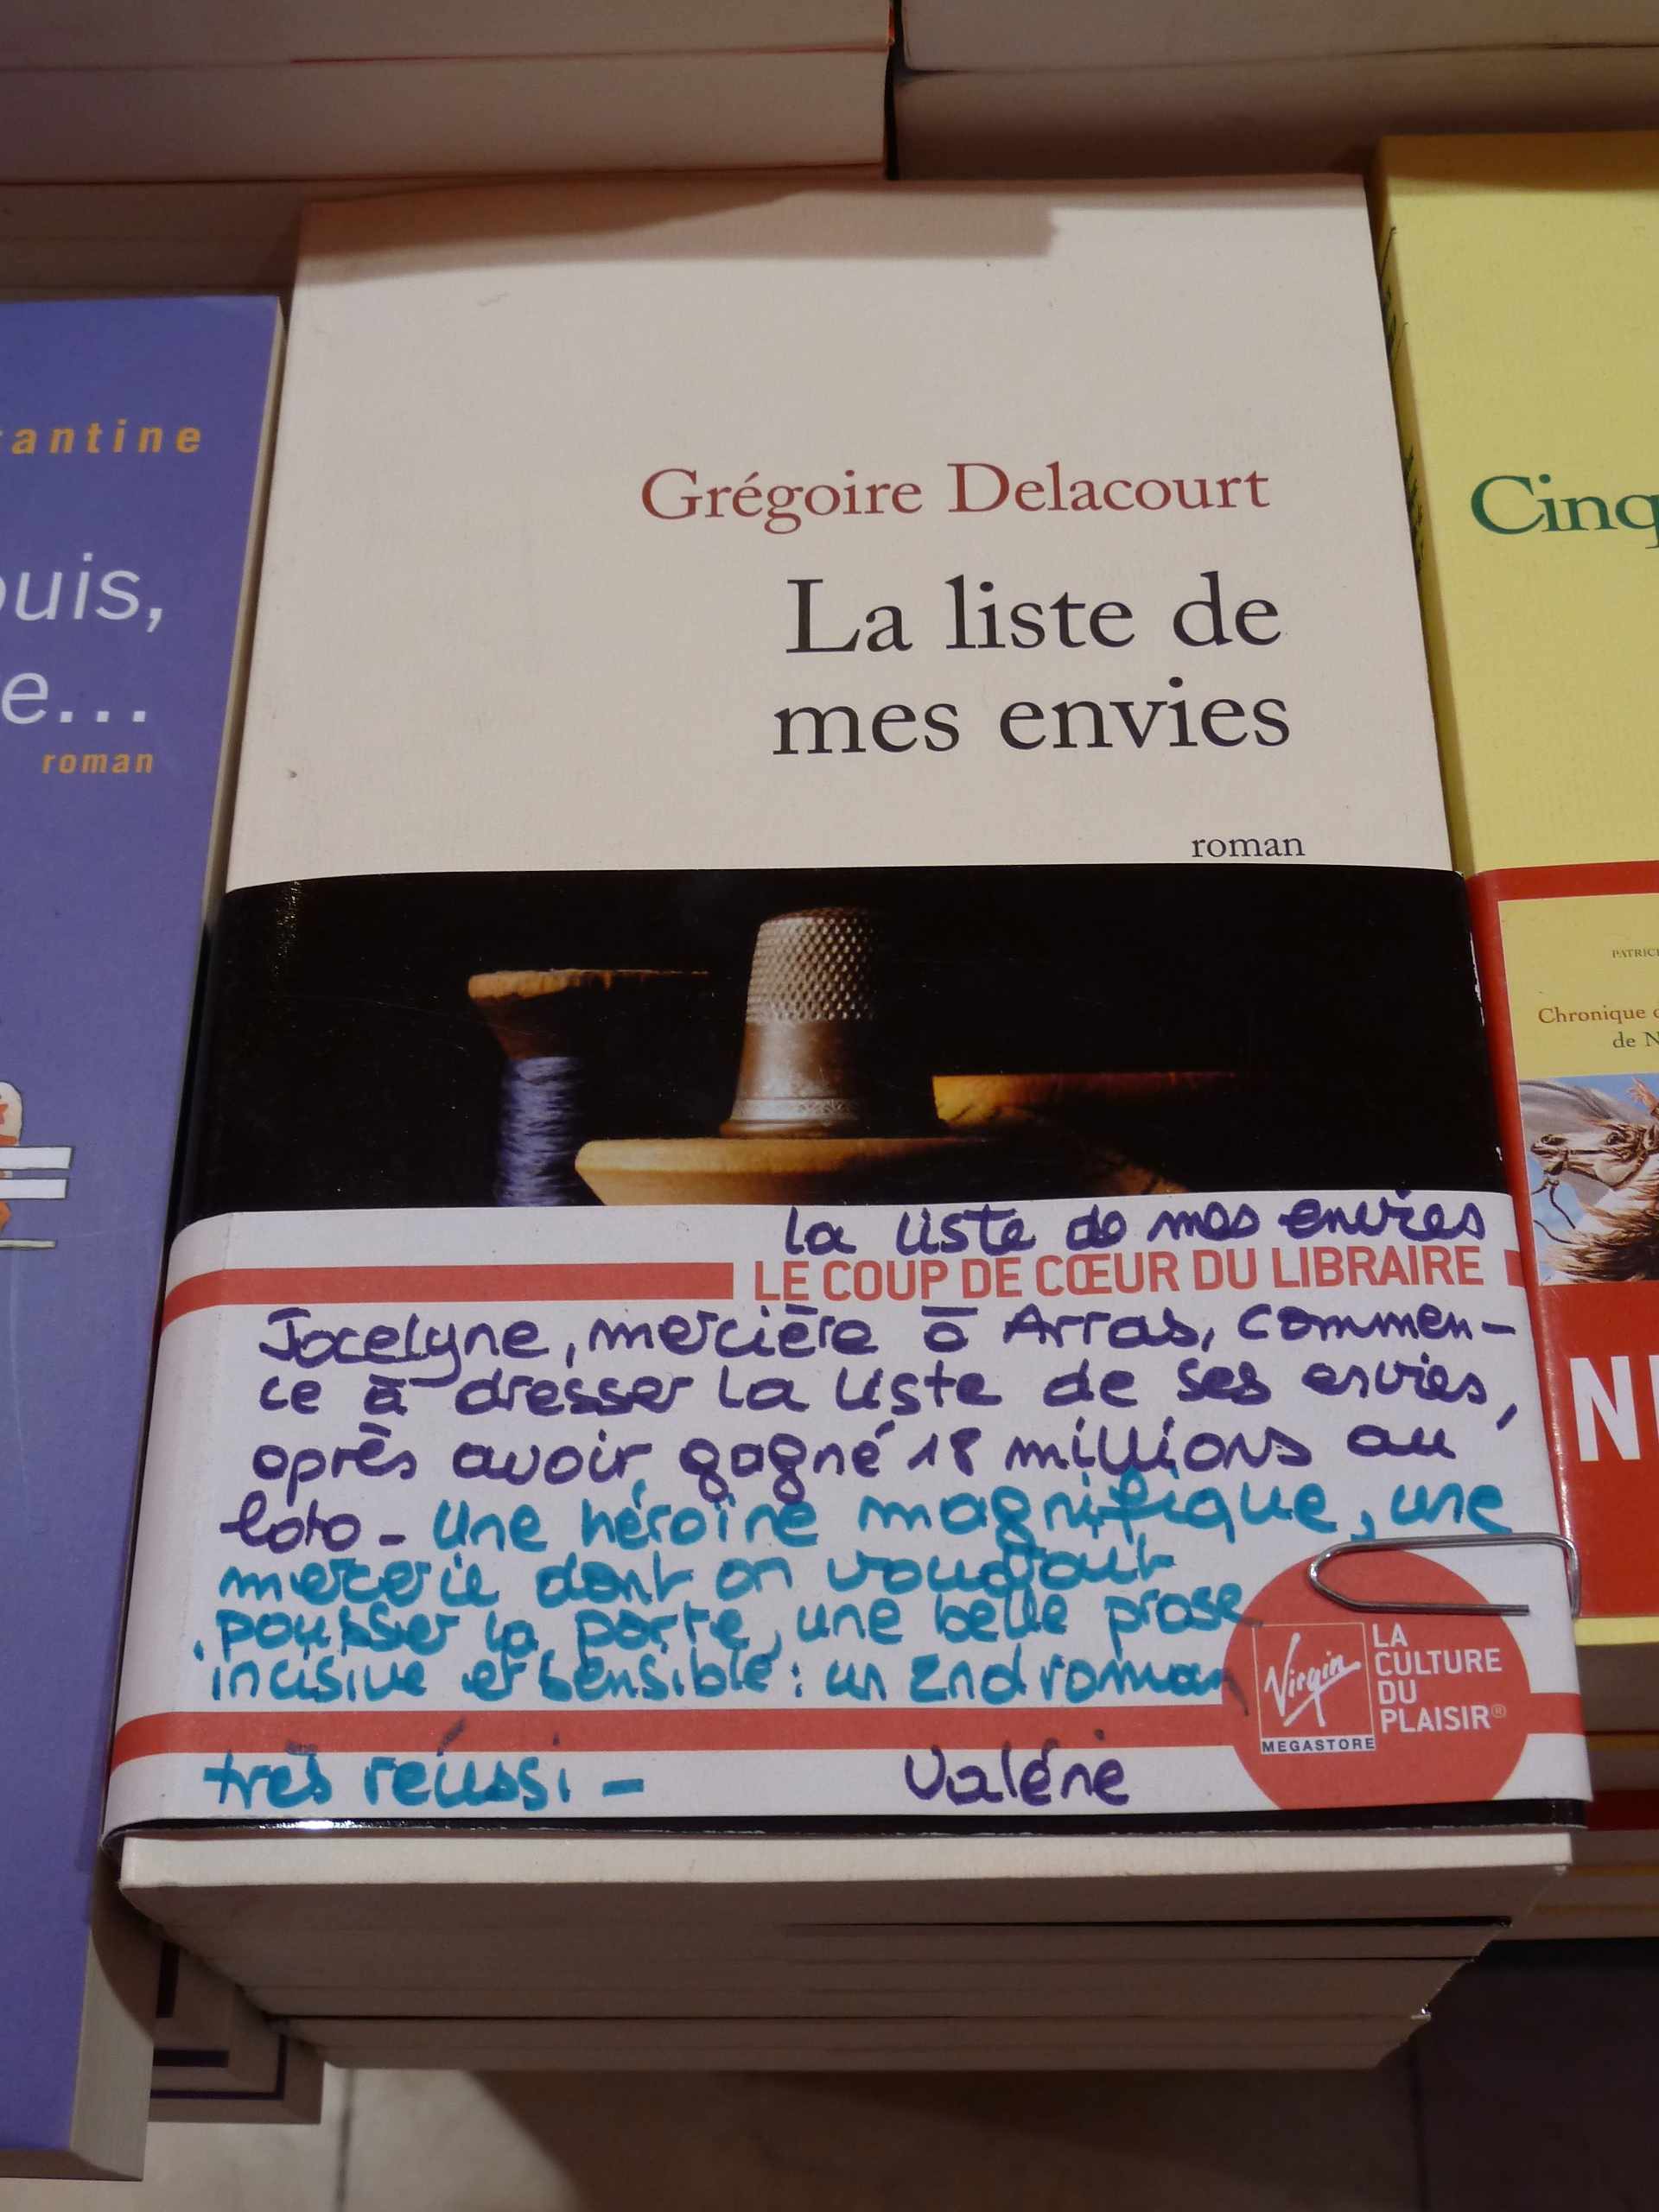 antine
ouis,
e...
roman
Grégoire Delacourt
La liste de
mes envies
roman
la liste de mes envies
LE COUP DE CŒUR DU LIBRAIRE
Jocelyne, mercière à Arras, commen-
ce à dresser la liste de ses envies,
après avoir gagné 18 millions au
loto - Une héroïne magnifique, une
mercerie dont on voudrait
pousser la porte, une belle prose
incisive et sensible : un 2nd roman
très réussi -
Valérie
Virgin
MEGASTORE
LA
CULTURE
DU
PLAISIR®
Cinq
PATRIC
Chronique
de N